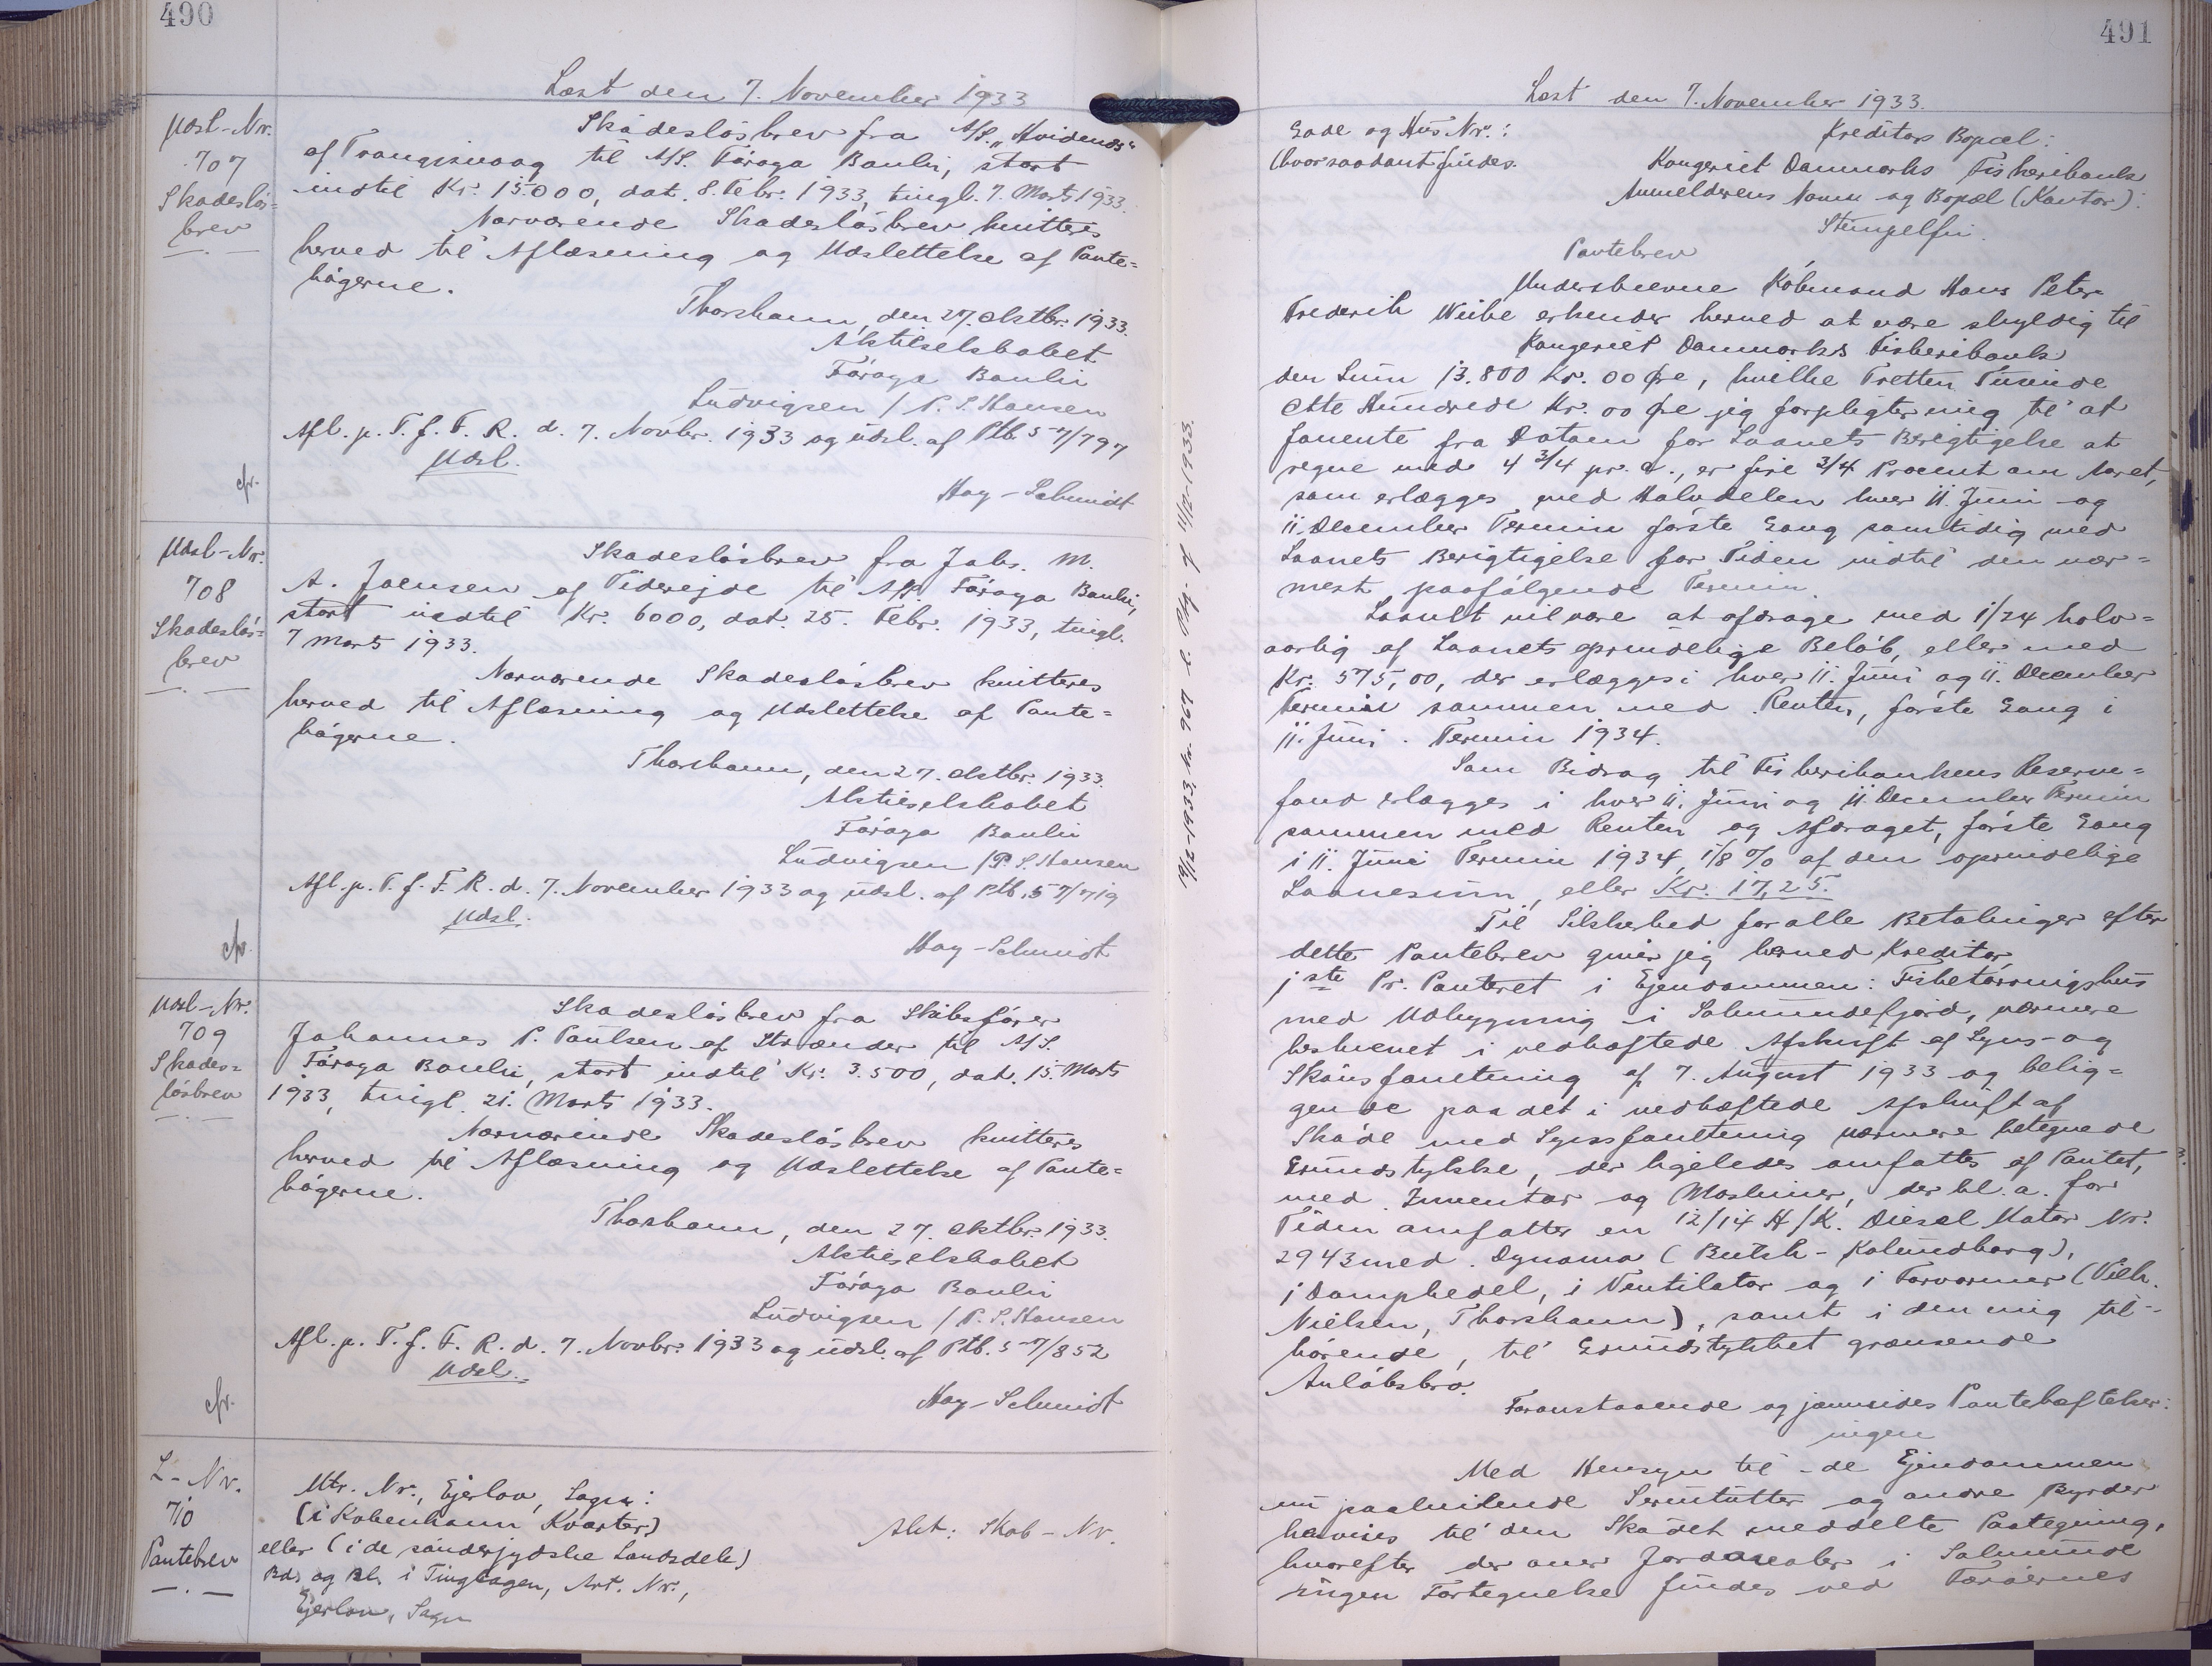 490
Læst den 7. November 1933
Udsl-Nr.
707
Skadesløs=
brev
Skadesløsbrev fra A/S. „Hvidenæs“
af Trangisvaag til A/S. Føroya Banki, stort
indtil Kr. 15.000, dat. 8. Febr. 1933, tingl. 7. Marts 1933.
Nærværende Skadesløsbrev kvitteres
herved til Aflæsning og Udslettelse af Pante=
bøgerne.
Thorshavn, den 27. Oktbr. 1933.
Aktieselskabet
Føroya Banki
Ludvigsen / P. S. Hansen
Afl. p. T. f. F. R. d. 7. Novbr. 1933 og udsl. af Ptb. 57/797
Udsl.
cfr.
Hay-Schmidt
Udsl-Nr.
708
Skadesløs=
brev
Skadesløsbrev fra Johs. M.
A. Joensen af Viderejde til A/S. Føroya Banki,
stort indtil Kr. 6000, dat. 25. Febr. 1933, tingl.
7 Marts 1933.
Nærværende Skadesløsbrev kvitteres
herved til Aflæsning og Udslettelse af Pante=
bøgerne.
Thorshavn, den 27. Oktbr. 1933.
Aktieselskabet
Føroya Banki
Ludvigsen / P. S. Hansen
Afl. p. T. f. F. R. d. 7. November 1933 og udsl. af Ptb. 57/719
Udsl.
cfr.
Hay-Schmidt
Udsl-Nr.
709
Skades=
løsbrev
Skadesløsbrev fra Skibsfører
Johannes P. Paulsen af Strænder til A/S.
Føroya Banki, stort indtil Kr. 3.500, dat. 15. Marts
1933, tingl. 21. Marts 1933.
Nærværende Skadesløsbrev kvitteres
herved til Aflæsning og Udslettelse af Pante=
bøgerne.
Thorshavn, den 27. Oktbr. 1933.
Aktieselskabet
Føroya Banki
Ludvigsen / P. S. Hansen
Afl. p. T. f. F. R. d. 7. Novbr. 1933 og udsl. af Ptb. 57/852
Udsl.
cfr.
Hay-Schmidt
L-Nr.
710
Pantebrev
Mtr. Nr., Ejerlav, Sogn:
(i København Kvarter)
eller (i de sønderjydske Landsdele)
Bd. og Bl. i Tingbogen, Art. Nr.,
Ejerlav, Sogn
Akt: Skab-Nr.
19/12-1933, Nr. 767 l. Obg. af 11/12-1933.
491
Læst den 7. November 1933.
Gade og Hus Nr.:
(hvor saadant findes.
Kreditors Bopæl:
Kongeriet Danmarks Fiskeribank
Anmelderens Navn og Bopæl (Kontor):
Stempelfri.
Pantebrev
Underskrevne Købmand Hans Peter
Frederik Weihe erkender herved at være skyldig til
Kongeriet Danmarks Fiskeribank
den Sum 13.800 Kr. 00 Øre, hvilke Tretten Tusinde
Otte Hundrede Kr. 00 Øre jeg forpligter mig til at
forrente fra Datoen for Laanets Berigtigelse at
regne med 4 3/4 pr. a., er fire 3/4 Procent om Aaret,
som erlægges med Halvdelen hver 11. Juni og
11. December Termin første Gang samtidig med
Laanets Berigtigelse for Tiden indtil den nær=
mest paafølgende Termin.
Laanet vil være at afdrage med 1/24 halv=
aarlig af Laanets oprindelige Beløb, eller med
Kr. 575,00, der erlægges i hver 11. Juni og 11. December
Termin sammen med Renten, første Gang i
11. Juni Termin 1934.
Som Bidrag til Fiskeribankens Reserve=
fond erlægges i hver 11. Juni og 11. December Termin
sammen med Renten og Afdraget, første Gang
i 11. Juni Termin 1934, 1/8 % af den oprindelige
Laanesum, eller Kr. 17,25.
Til Sikkerhed for alle Betalinger efter
dette Pantebrev giver jeg herved Kreditor
1ste Pr. Panteret i Ejendommen: Fisketørringshus
med Udbygning i Salmundefjord, nærmere
beskrevet i vedhæftede Afskrift af Syns- og
Skønsforretning af 7. August 1933 og belig=
gende paa det i vedhæftede Afskrift af
Skøde med Synsforretning nærmere betegnede
Grundstykke, der ligeledes omfattes af Pantet,
med Inventar og Maskiner, der bl. a. for
Tiden omfatter en 12/14 H/K. Diesel Motor Nr.
2943 med Dynamo (Bukh-Kalundborg),
1 Dampkedel, 1 Ventilator og 1 Forvarmer (Vilh.
Nielsen, Thorshavn), samt i den mig til=
hørende, til Grundstykket grænsende
Anløbsbro.
Foranstaaende og jævnsides Pantehæftelser:
ingen
Med Hensyn til de Ejendommen
nu paahvilende Servitutter og andre Byrder
henvises til den Skødet meddelte Paategning,
hvorefter der over Jordarealer i Salmunde
ingen Fortegnelse findes ved Færøernes